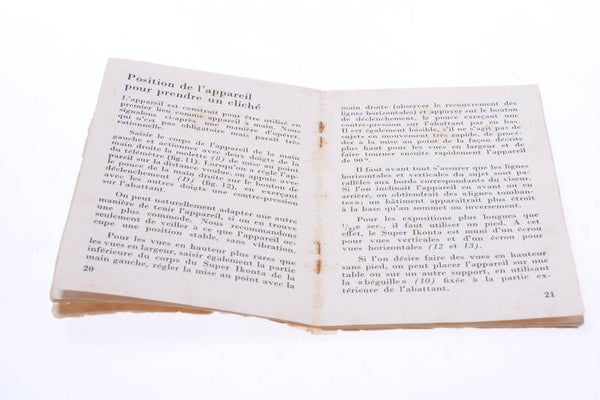 Position de l'appareil
pour prendre un cliché
L'appareil est construit pour être utilisé en
premier lieu comme appareil à main. Nous
signalons ci-après une manière d'opérer
qui n'est pas obligatoire mais paraît très
rationnelle.
Saisir le corps de l'appareil de la main
gauche et actionner avec deux doigts de la
main droite la molette (8) de mise au point
du télémètre (fig. 11). Lorsqu'on a réglé l'ap-
pareil sur la distance voulue, on appuie avec
le pouce de la main droite sur le bouton de
déclenchement (D) (fig. 12), en exerçant
avec les autres doigts une contre-pression
sur l'abattant.
On peut naturellement adapter une autre
manière de tenir l'appareil, si on en trouve
une plus commode. Nous recommandons
seulement de veiller à ce que l'appareil oc-
cupe une position stable, sans vibration.
Pour les vues en hauteur plus rares que
les vues en largeur, saisir également la partie
inférieure du corps du Super Ikonta de la
main gauche, régler la mise au point avec la
20
main droite (observer le recouvrement des
lignes horizontales) et appuyer sur le bouton
de déclenchement, le pouce exerçant une
contre-pression sur l'abattant par en bas.
Il est également loisible, s'il ne s'agit pas de
sujets en mouvement très rapide, de procé-
der à la mise au point de la façon décrite
plus haut pour les vues en largeur et de
faire tourner ensuite rapidement l'appareil
de 90°.
Il faut avant tout s'assurer que les lignes
horizontales et verticales du sujet sont pa-
rallèles aux bords correspondants du viseur.
Si l'on inclinait l'appareil en avant ou en
arrière, on obtiendrait des «lignes tomban-
tes»; un bâtiment apparaîtrait plus étroit
à la base qu'au sommet ou inversement.
Pour les expositions plus longues que
sec., il faut utiliser un pied. A cet
effet, le Super Ikonta est muni d'un écrou
pour vues verticales et d'un écrou pour
vues horizontales (12 et 13).
Si l'on désire faire des vues en hauteur
sans pied, on peut placer l'appareil sur une
table ou sur un autre support, en utilisant
la «béquille» (10) fixée à la partie ex-
térieure de l'abattant.
21